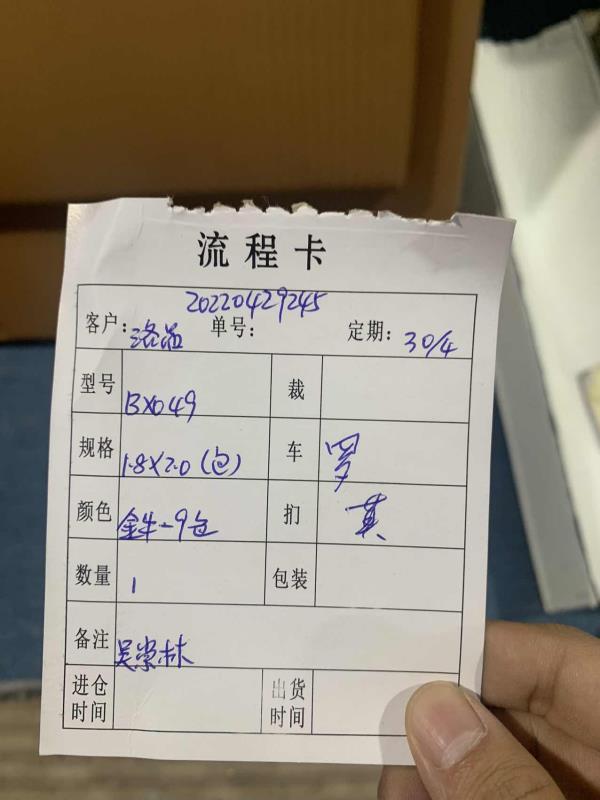 流程卡
20220429245
客户: 洛品 单号: 定期: 30/4
型号 BX049 裁
规格 1.8X2.0(包) 车 罗
颜色 金牛-9包 扪 真
数量 1 包装
备注 吴崇林
进仓时间 出货时间